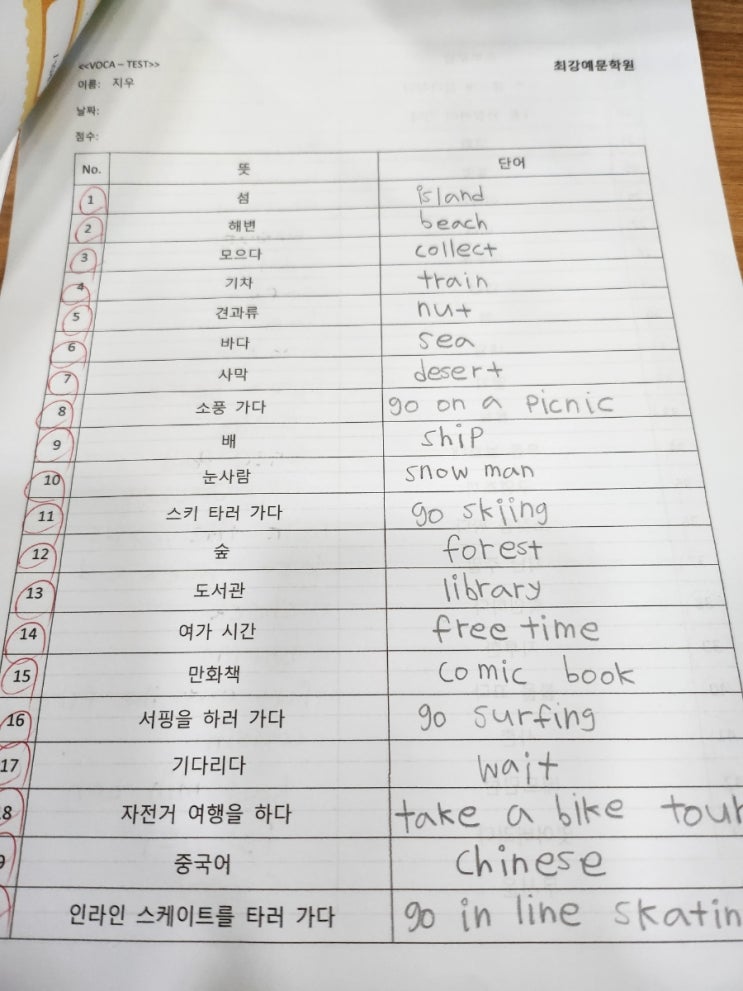 <<VOCA – TEST>>
최강예문학원
이름: 지우
날짜:
점수:
No. 뜻 단어
1 섬 island
2 해변 beach
3 모으다 collect
4 기차 train
5 견과류 nut
6 바다 sea
7 사막 desert
8 소풍 가다 go on a picnic
9 배 ship
10 눈사람 snow man
11 스키 타러 가다 go skiing
12 숲 forest
13 도서관 library
14 여가 시간 free time
15 만화책 comic book
16 서핑을 하러 가다 go surfing
17 기다리다 wait
8 자전거 여행을 하다 take a bike tour
9 중국어 Chinese
인라인 스케이트를 타러 가다 go in line skatin